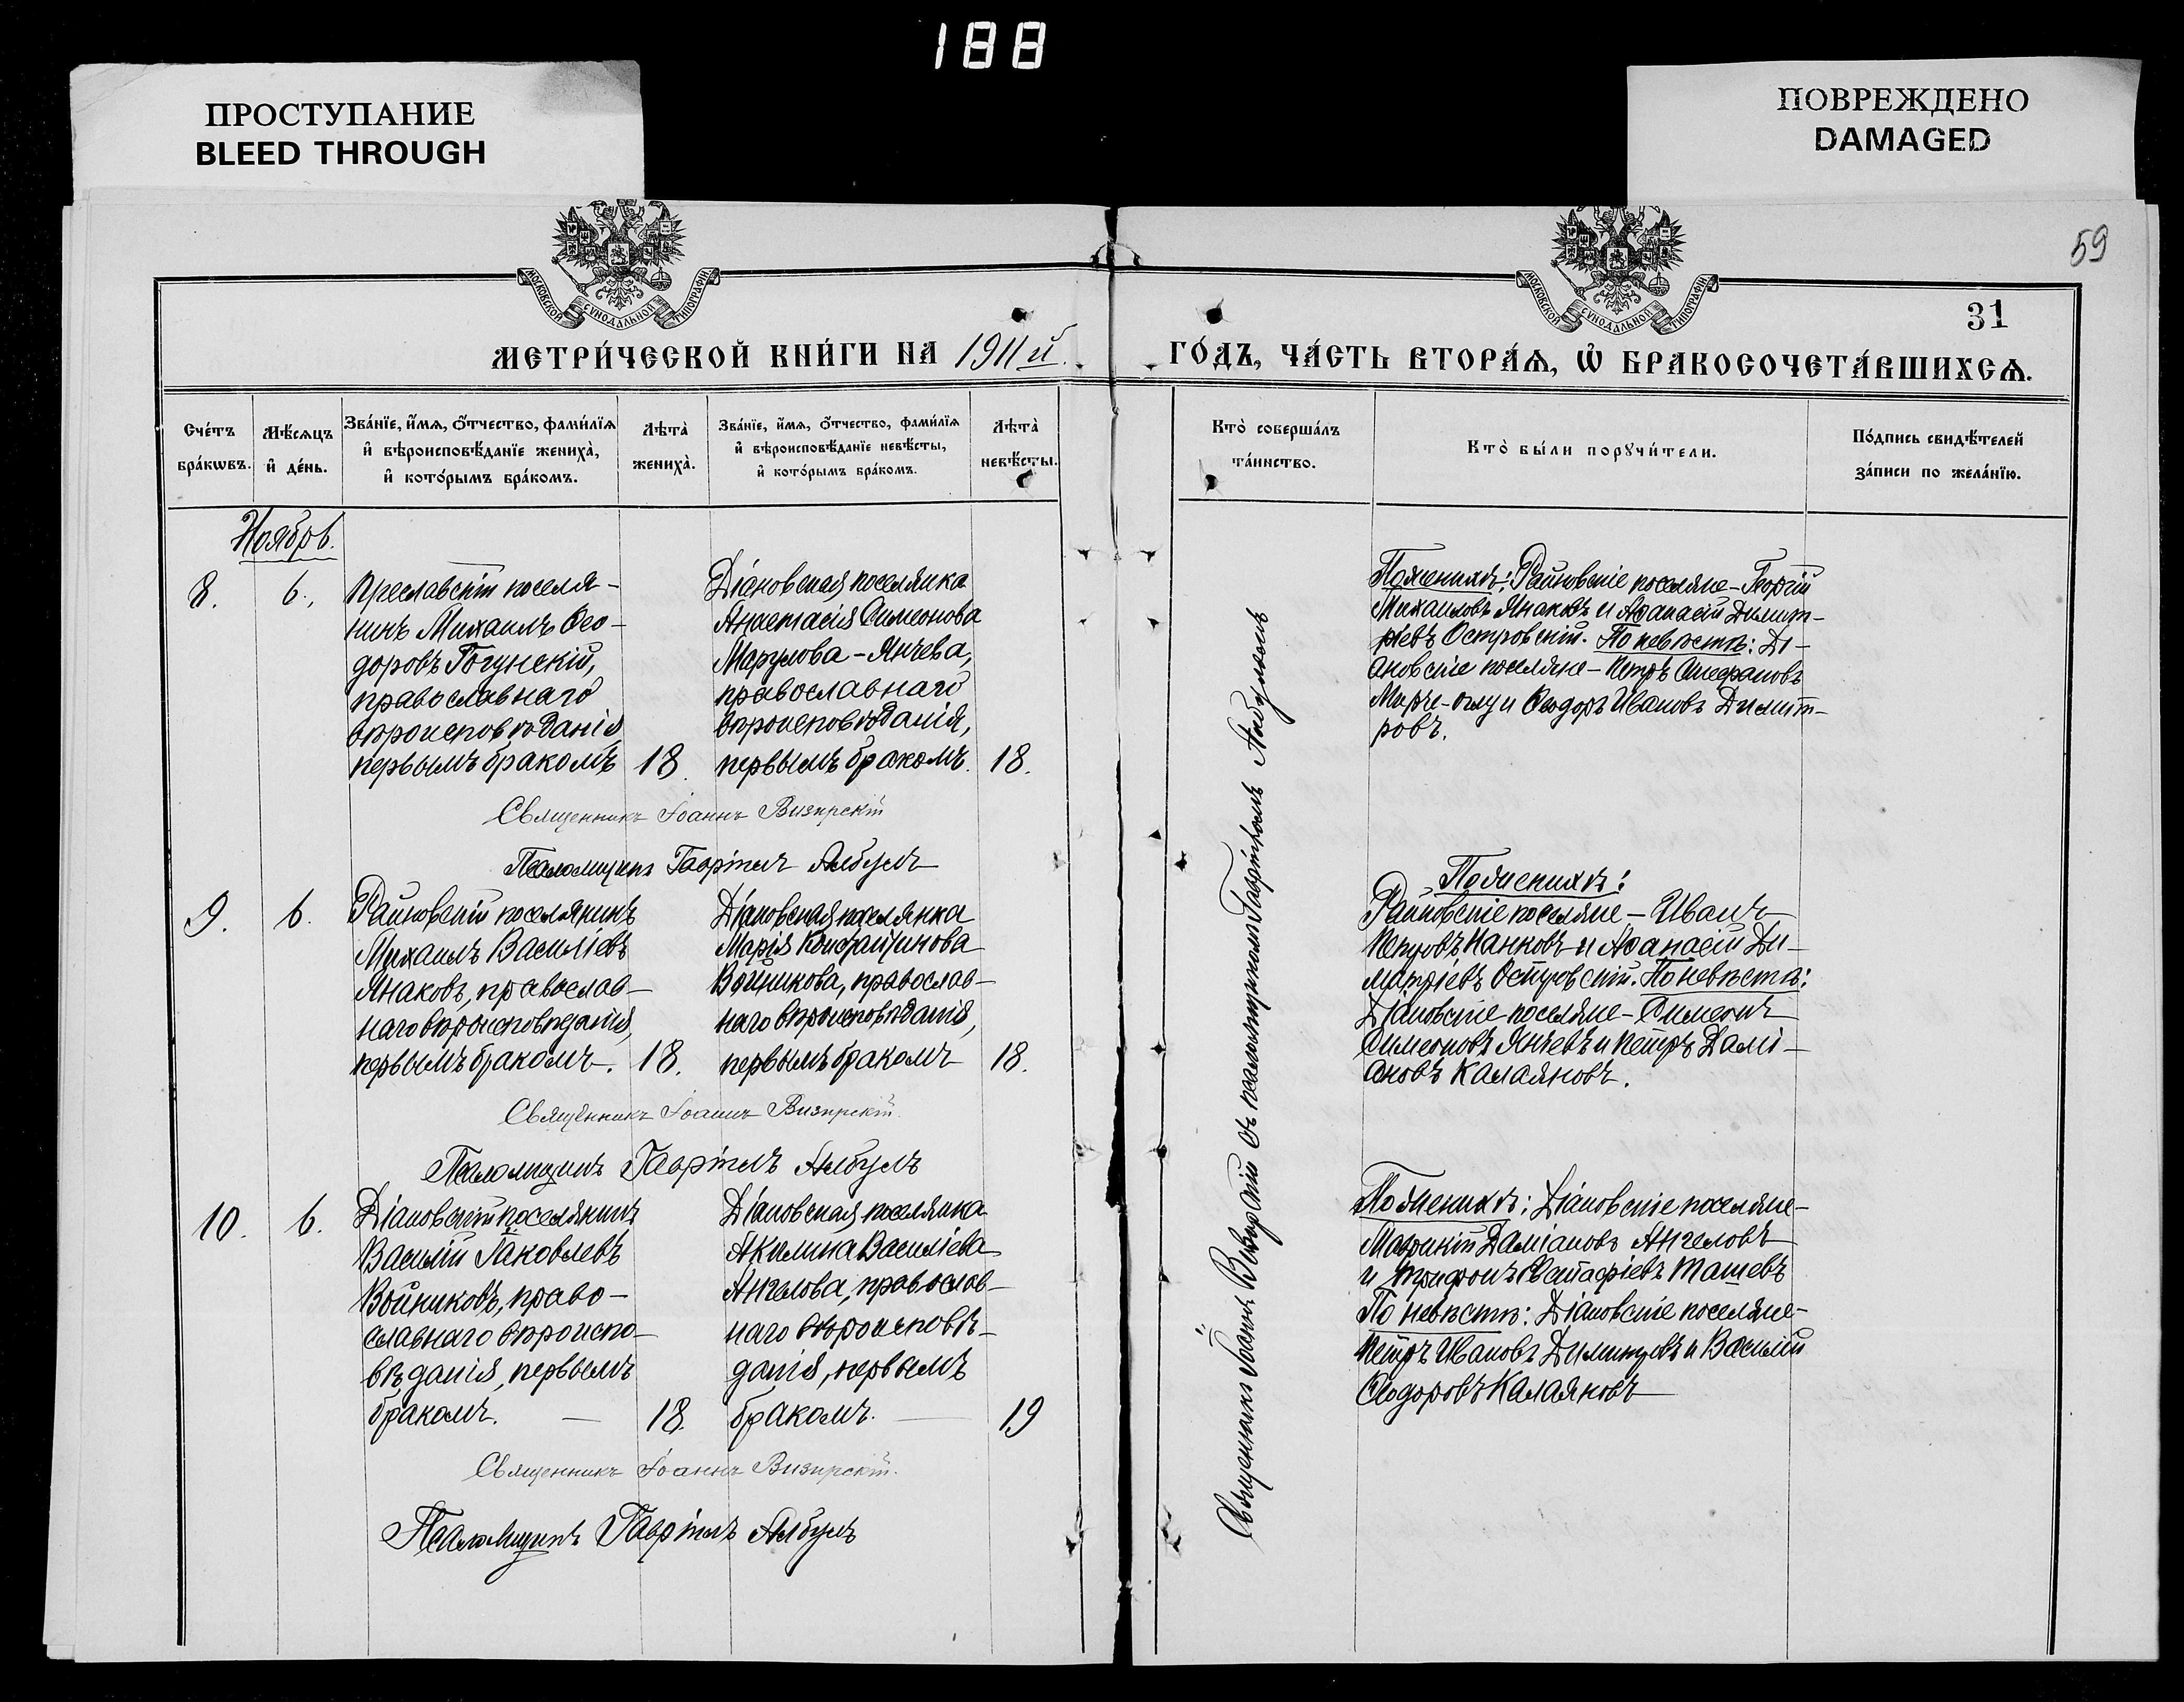 188
ПРОСТУПАНИЕ
BLEED THROUGH
ПОВРЕЖДЕНО
DAMAGED
59
МОСКОВСКОЙ СУНОДАЛЬНОЙ ТИПОГРАФІИ
МОСКОВСКОЙ СУНОДАЛЬНОЙ ТИПОГРАФІИ
31
МЕТРИ́ЧЕСКОЙ КНИ́ГИ НА 1911 й
ГО́ДЪ, ЧА́СТЬ ВТОРА́Ѧ, Ѡ҆ БРАКОСОЧЕТА́ВШИХСѦ.
Сче́тъ
бра́кѡвъ.
Мѣ́сѧцъ
и҆ де́нь.
Зва́нїе, и҆́мѧ, ѻ҆́тчество, фами́лїѧ
и҆ вѣроисповѣ́данїе жениха̀,
и҆ кото́рымъ бра́комъ.
Лѣта̀
жениха̀.
Зва́нїе, и҆́мѧ, ѻ҆́тчество, фами́лїѧ
и҆ вѣроисповѣ́данїе невѣ́сты,
и҆ кото́рымъ бра́комъ.
Лѣта̀
невѣ́сты.
Кто̀ соверша́лъ
та́инство.
Кто̀ бы́ли порꙋчи́тели.
По́дпись свидѣ́телей
за́писи по жела́нїю.
Ноябрь.
8.
6.
Преславскій поселя-
нинъ Михаилъ Ѳео-
доровъ Гогунскій,
православнаго
вѣроисповѣданія
первымъ бракомъ
18.
Діановская поселянка
Анастасія Симеонова
Марулова-Янчева,
православнаго
вѣроисповѣданія,
первымъ бракомъ.
18.
По женихѣ: Райновскіе поселяне - Георгій
Михаиловъ Янаковъ и Аѳанасій Димит-
ріевъ Островскій. По невѣстѣ: Ді-
ановскіе поселяне - Петръ Стефановъ
оглу и Ѳеодоръ Ивановъ Димит-
ровъ.
Священникъ Іоаннъ Визирскій
Псаломщикъ Гавріилъ Албулъ
9.
6.
Райновскій поселянинъ
Михаилъ Василіевъ
Янаковъ, православ-
наго вѣроисповѣданія,
первымъ бракомъ.
18.
Діановская поселянка
Марія Константинова
Войникова, православ-
наго вѣроисповѣданія,
первымъ бракомъ
18.
По женихѣ:
Райновскіе поселяне - Иванъ
Петровъ Панковъ и Аѳанасій Ди-
митріевъ Островскій. По невѣстѣ:
Діановскіе поселяне - Симеонъ
Симеоновъ Янчевъ и Петръ Дамі-
ановъ Калаяновъ.
Священникъ Іоаннъ Визирскій
Псаломщикъ Гавріилъ Албулъ
10.
6.
Діановскій поселянинъ
Василій Іаковлевъ
Войниковъ, право-
славнаго вѣроиспо-
вѣданія, первымъ
бракомъ.
18.
Діановская поселянка
Акилина Василіева
Ангелова, православ-
наго вѣроисповѣ-
данія, первымъ
бракомъ.
19
По женихѣ: Діановскіе поселяне-
Маврикій Даміановъ Ангеловъ
и Трифонъ Ташевъ
По невѣстѣ: Діановскіе поселяне-
Петръ Ивановъ Димитровъ и Василій
Ѳеодоровъ Калаяновъ
Священникъ Іоаннъ Визирскій.
Псаломщикъ Гавріилъ Албулъ
Священникъ Іоаннъ Визирскій съ псаломщикомъ Гавріиломъ Албуломъ